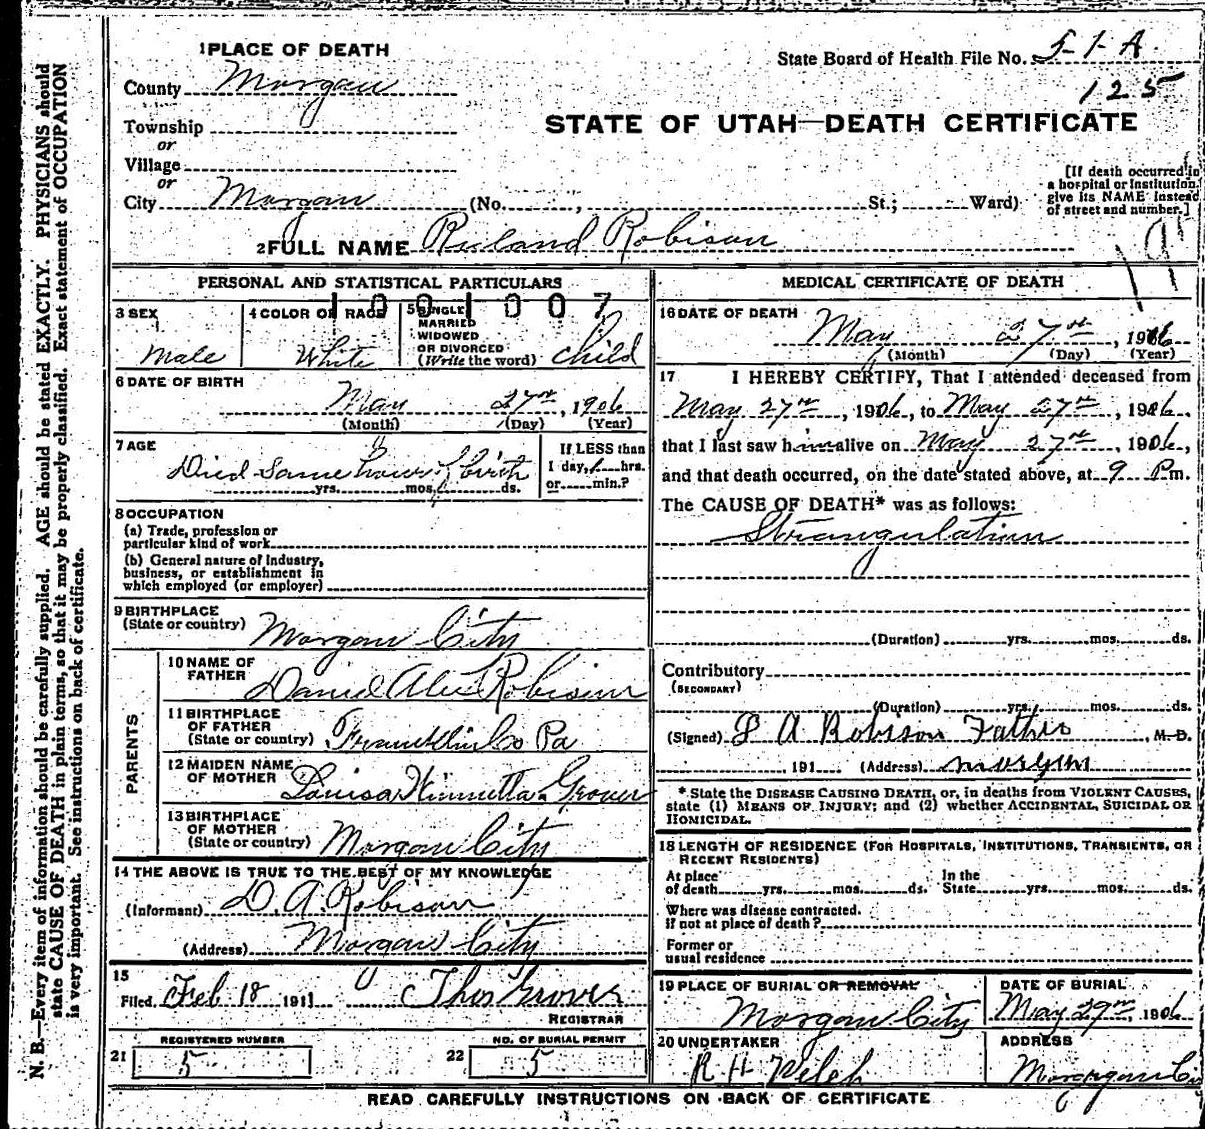 1 PLACE OF DEATH
State Board of Health File No. 5-1-A
125
County Morgan
STATE OF UTAH—DEATH CERTIFICATE
Township
or
Village
or
City Morgan (No. , St.; Ward)
[If death occurred in
a hospital or institution,
give its NAME instead
of street and number.]
2 FULL NAME Ruland Robison
PERSONAL AND STATISTICAL PARTICULARS
1001007
3 SEX
Male
4 COLOR OR RACE
White
5 SINGLE
MARRIED
WIDOWED
OR DIVORCED
(Write the word) child
6 DATE OF BIRTH
May 27th, 1906
(Month) (Day) (Year)
7 AGE
Died Same hour of birth
yrs. mos. ds.
If LESS than
1 day, hrs.
or min.?
8 OCCUPATION
(a) Trade, profession or
particular kind of work
(b) General nature of industry,
business, or establishment in
which employed (or employer)
9 BIRTHPLACE
(State or country) Morgan City
PARENTS
10 NAME OF
FATHER
Daniel Alex Robison
11 BIRTHPLACE
OF FATHER
(State or country) Franklin Co Pa
12 MAIDEN NAME
OF MOTHER Louisa Hinnetta Grover
13 BIRTHPLACE
OF MOTHER
(State or country) Morgan City
14 THE ABOVE IS TRUE TO THE BEST OF MY KNOWLEDGE
(Informant) D. A. Robison
(Address) Morgan City
15
Filed Feb 18 1911 Thos Grover
REGISTRAR
21 REGISTERED NUMBER
5
22 NO. OF BURIAL PERMIT
5
MEDICAL CERTIFICATE OF DEATH
16 DATE OF DEATH
May 27th, 1906
(Month) (Day) (Year)
17 I HEREBY CERTIFY, That I attended deceased from
May 27th, 1906, to May 27th, 1906,
that I last saw him alive on May 27th, 1906,
and that death occurred, on the date stated above, at 9 P m.
The CAUSE OF DEATH* was as follows:
Strangulation
(Duration) yrs. mos. ds.
Contributory
(SECONDARY)
(Duration) yrs. mos. ds.
(Signed) D A Robison Father, M.D.
191 (Address) Morgan
* State the DISEASE CAUSING DEATH, or, in deaths from VIOLENT CAUSES,
state (1) MEANS OF INJURY; and (2) whether ACCIDENTAL, SUICIDAL OR
HOMICIDAL.
18 LENGTH OF RESIDENCE (FOR HOSPITALS, INSTITUTIONS, TRANSIENTS, OR
RECENT RESIDENTS)
At place
of death yrs. mos. ds.
In the
State yrs. mos. ds.
Where was disease contracted.
if not at place of death?
Former or
usual residence
19 PLACE OF BURIAL OR REMOVAL
Morgan City
DATE OF BURIAL
May 29th, 1906
20 UNDERTAKER
R H Welch
ADDRESS
Morgan Ci
READ CAREFULLY INSTRUCTIONS ON BACK OF CERTIFICATE
N. B.—Every item of information should be carefully supplied. AGE should be stated EXACTLY. PHYSICIANS should
state CAUSE OF DEATH in plain terms, so that it may be properly classified. Exact statement of OCCUPATION
is very important. See instructions on back of certificate.